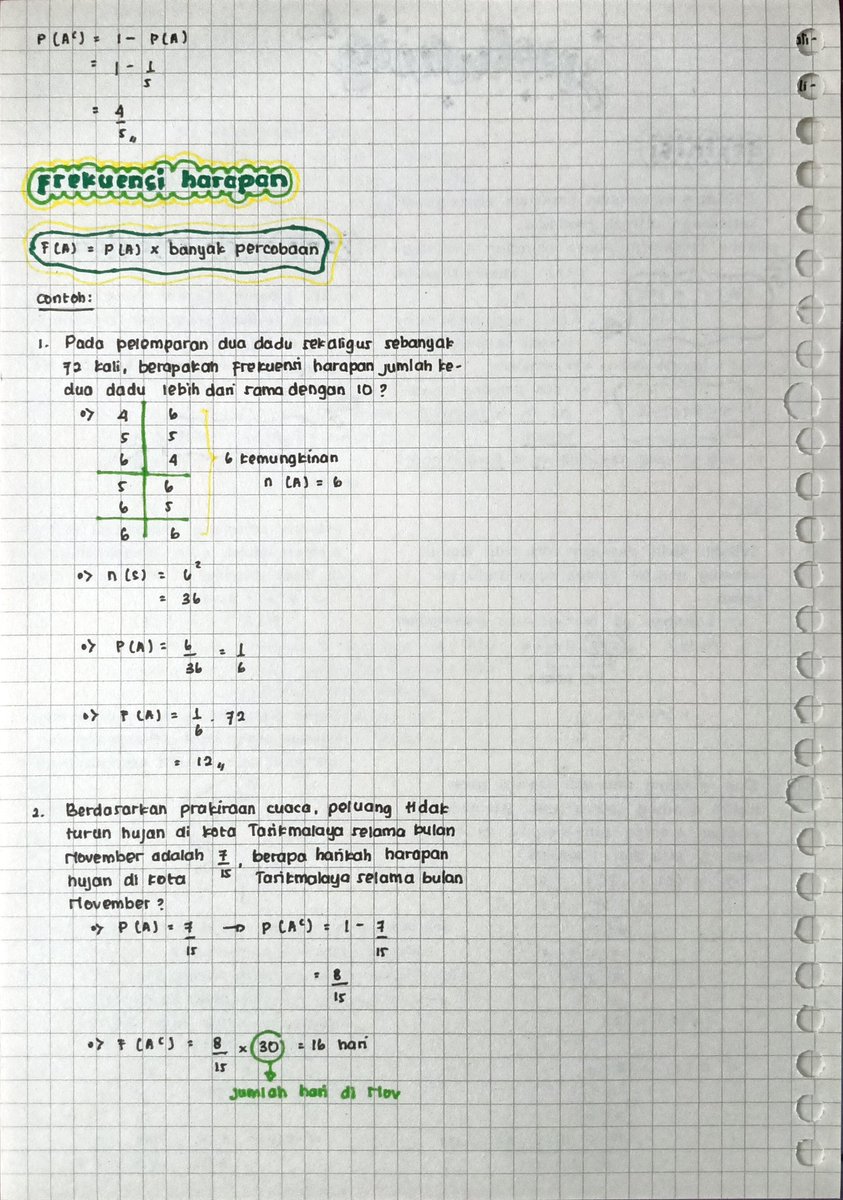 P(Aᶜ) = 1 - P(A)
= 1 - 1/5
= 4/5 „
Frekuensi harapan
F(A) = P(A) x banyak percobaan
Contoh:
1. Pada pelemparan dua dadu sekaligus sebanyak
72 kali, berapakah frekuensi harapan jumlah ke-
dua dadu lebih dari sama dengan 10 ?
•> 4 | 6
5 | 5
6 | 4 } 6 kemungkinan
5 | 6 n (A) = 6
6 | 5
6 | 6
•> n (S) = 6²
= 36
•> P(A) = 6/36 = 1/6
•> F(A) = 1/6 . 72
= 12 „
2. Berdasarkan prakiraan cuaca, peluang tidak
turun hujan di kota Tasikmalaya selama bulan
November adalah 7/15, berapa harikah harapan
hujan di kota Tasikmalaya selama bulan
November ?
•> P(A) = 7/15 → P(Aᶜ) = 1 - 7/15
= 8/15
•> F(Aᶜ) = 8/15 x 30 = 16 hari
jumlah hari di Nov